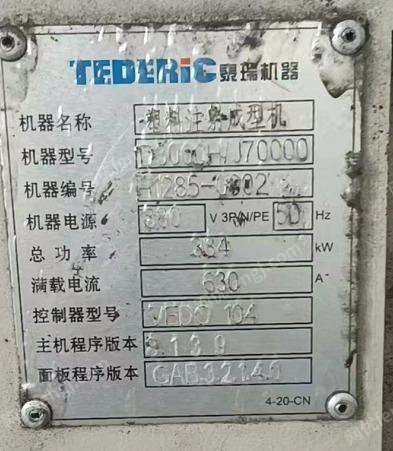 TEDERIC 泰瑞机器
机器名称 塑料注射成型机
机器型号
机器编号
机器电源 380 V 3P/N/PE 50 Hz
总功率 334 kW
满载电流 630 A
控制器型号 104
主机程序版本 9.1.3.9
面板程序版本 CAB3.2.1.4.6
4-20-CN